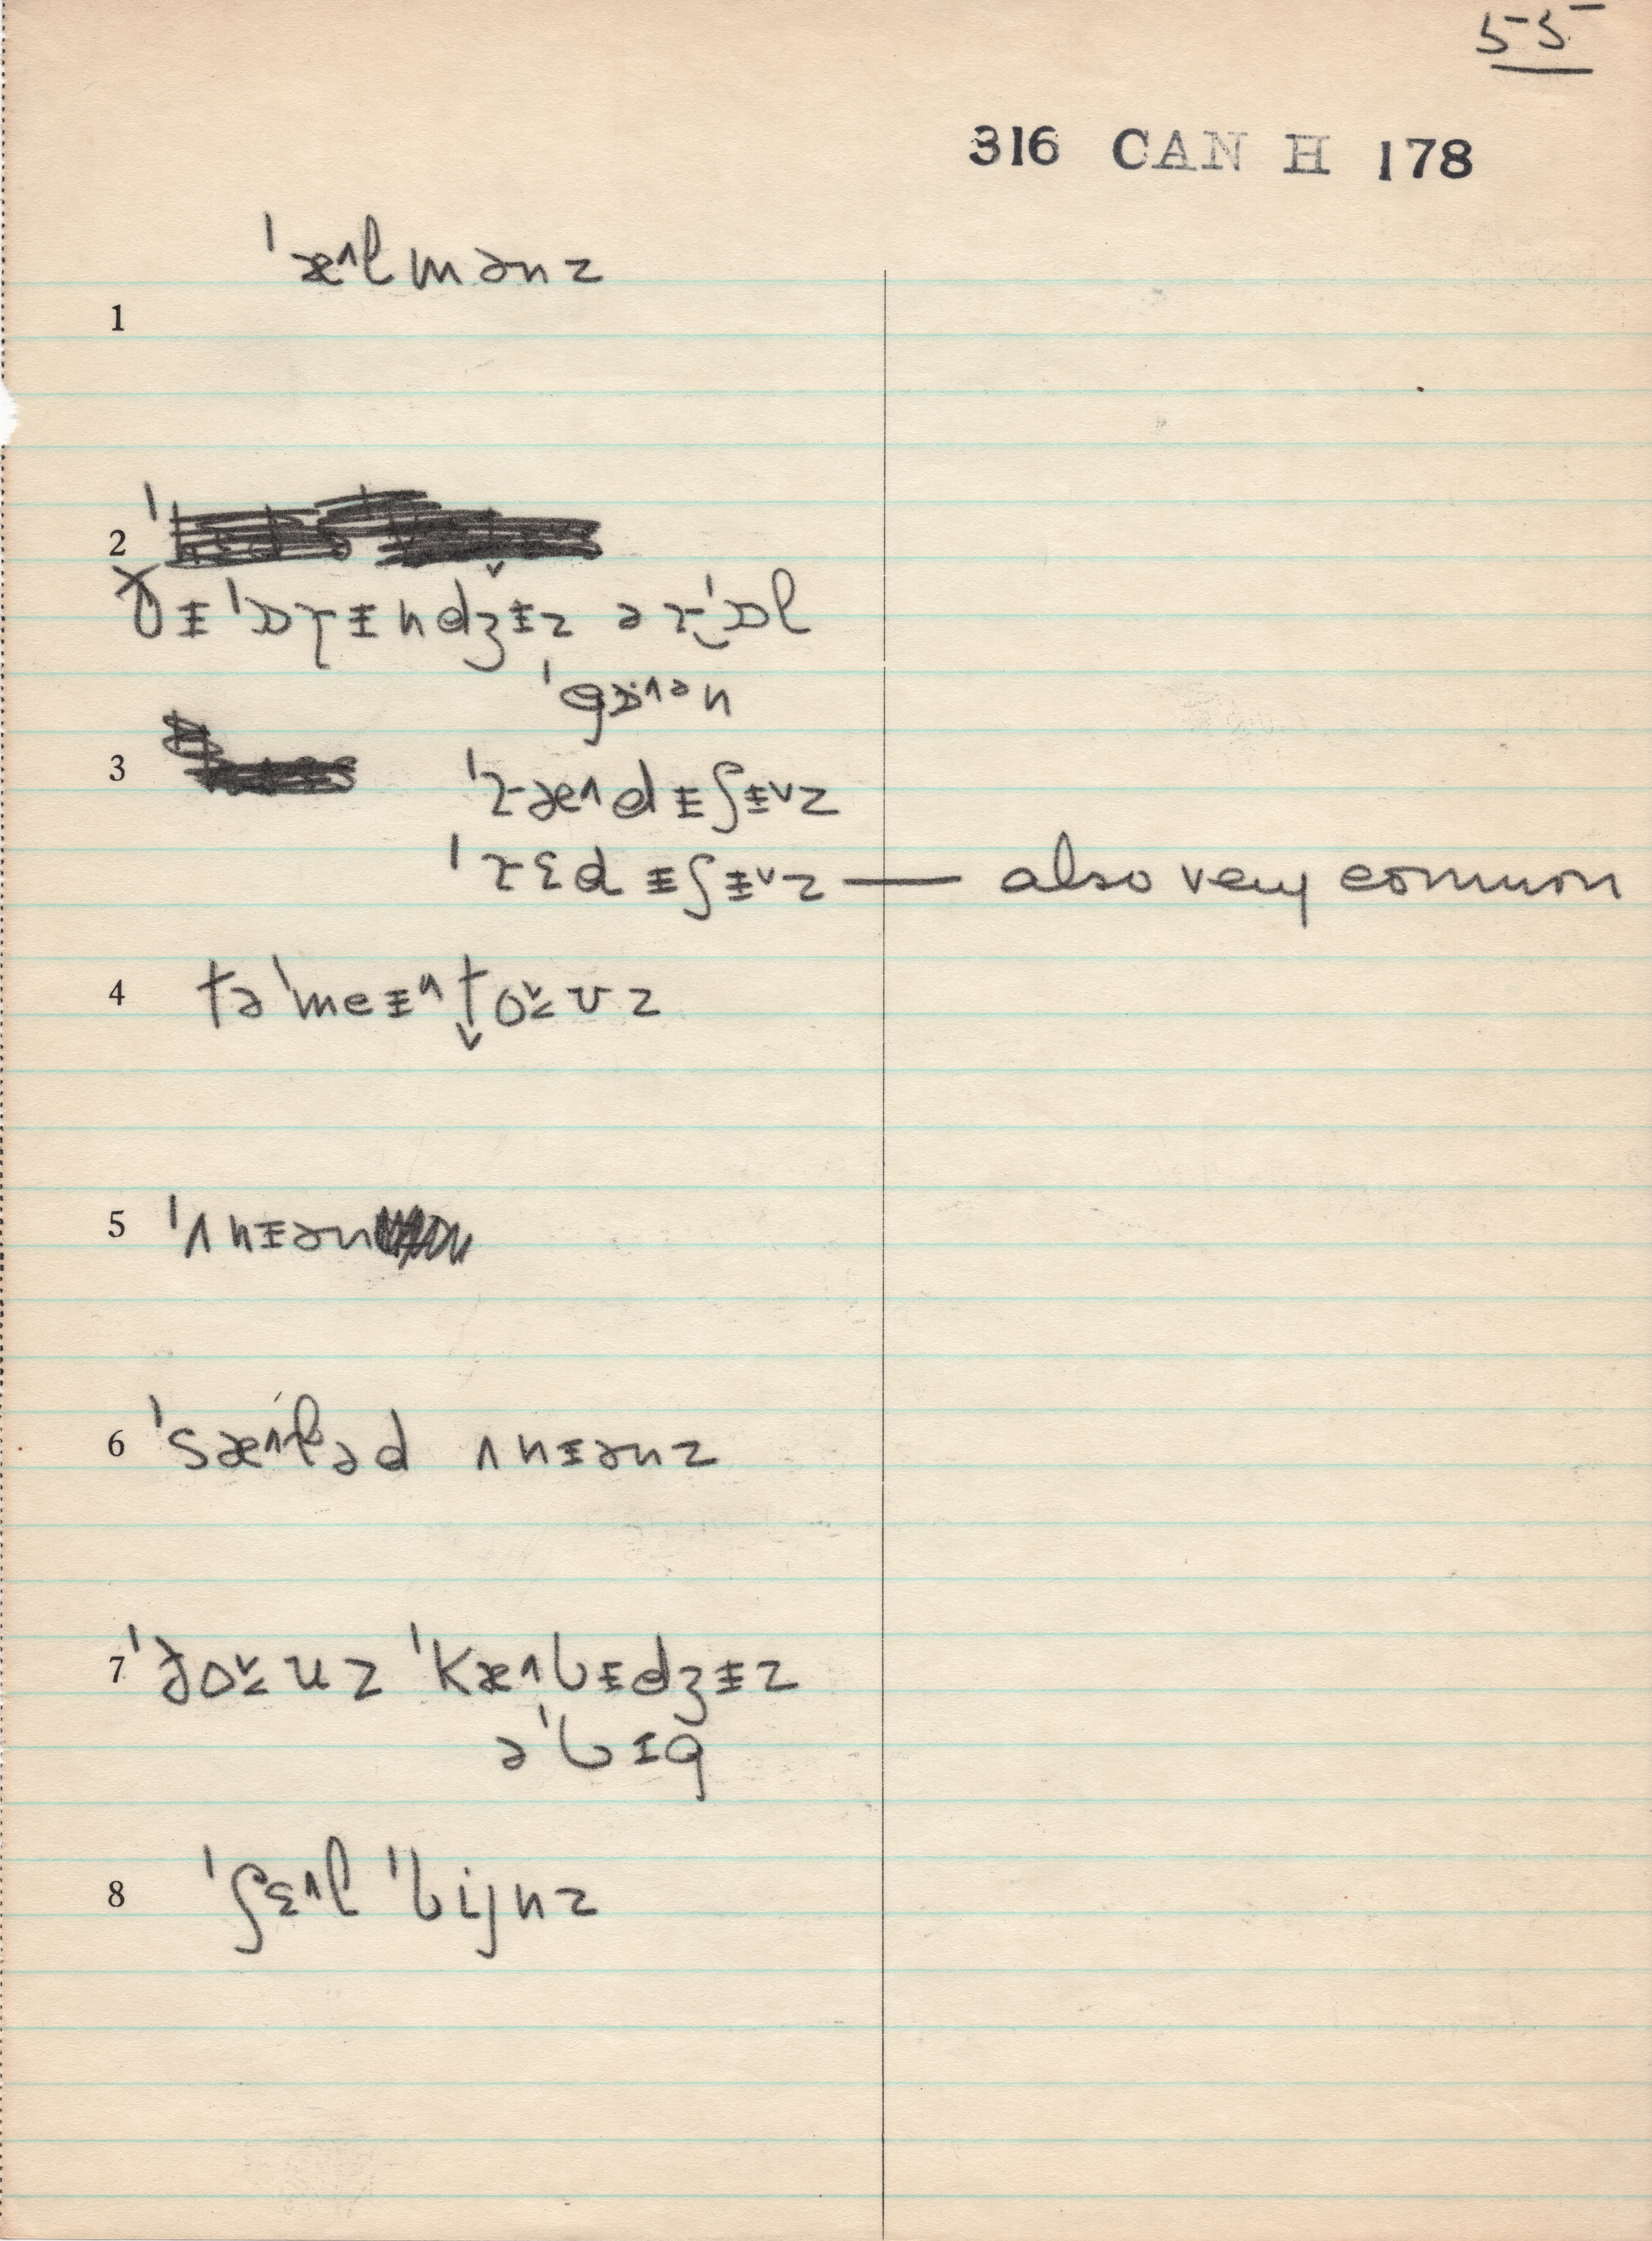 55
316 CAN H 178
ˈæ^lmənz
1
2
ðɨ ˈɒrɨndʒɨz ər ˈɒl
ˈgɒ^ən
3 ˈræ^ndɨʃɨˇz
ˈrɛdɨʃɨˇz — also very common
4 təˈmeɨ^t̬oˇʊz
5 ˈʌnɨən
6 ˈsæ^ləd ʌnɨənz
7 ˈðoˇuz ˈkæ^bɨdʒɨz
əˈbɪg
8 ˈʃɛ^l ˈbijnz